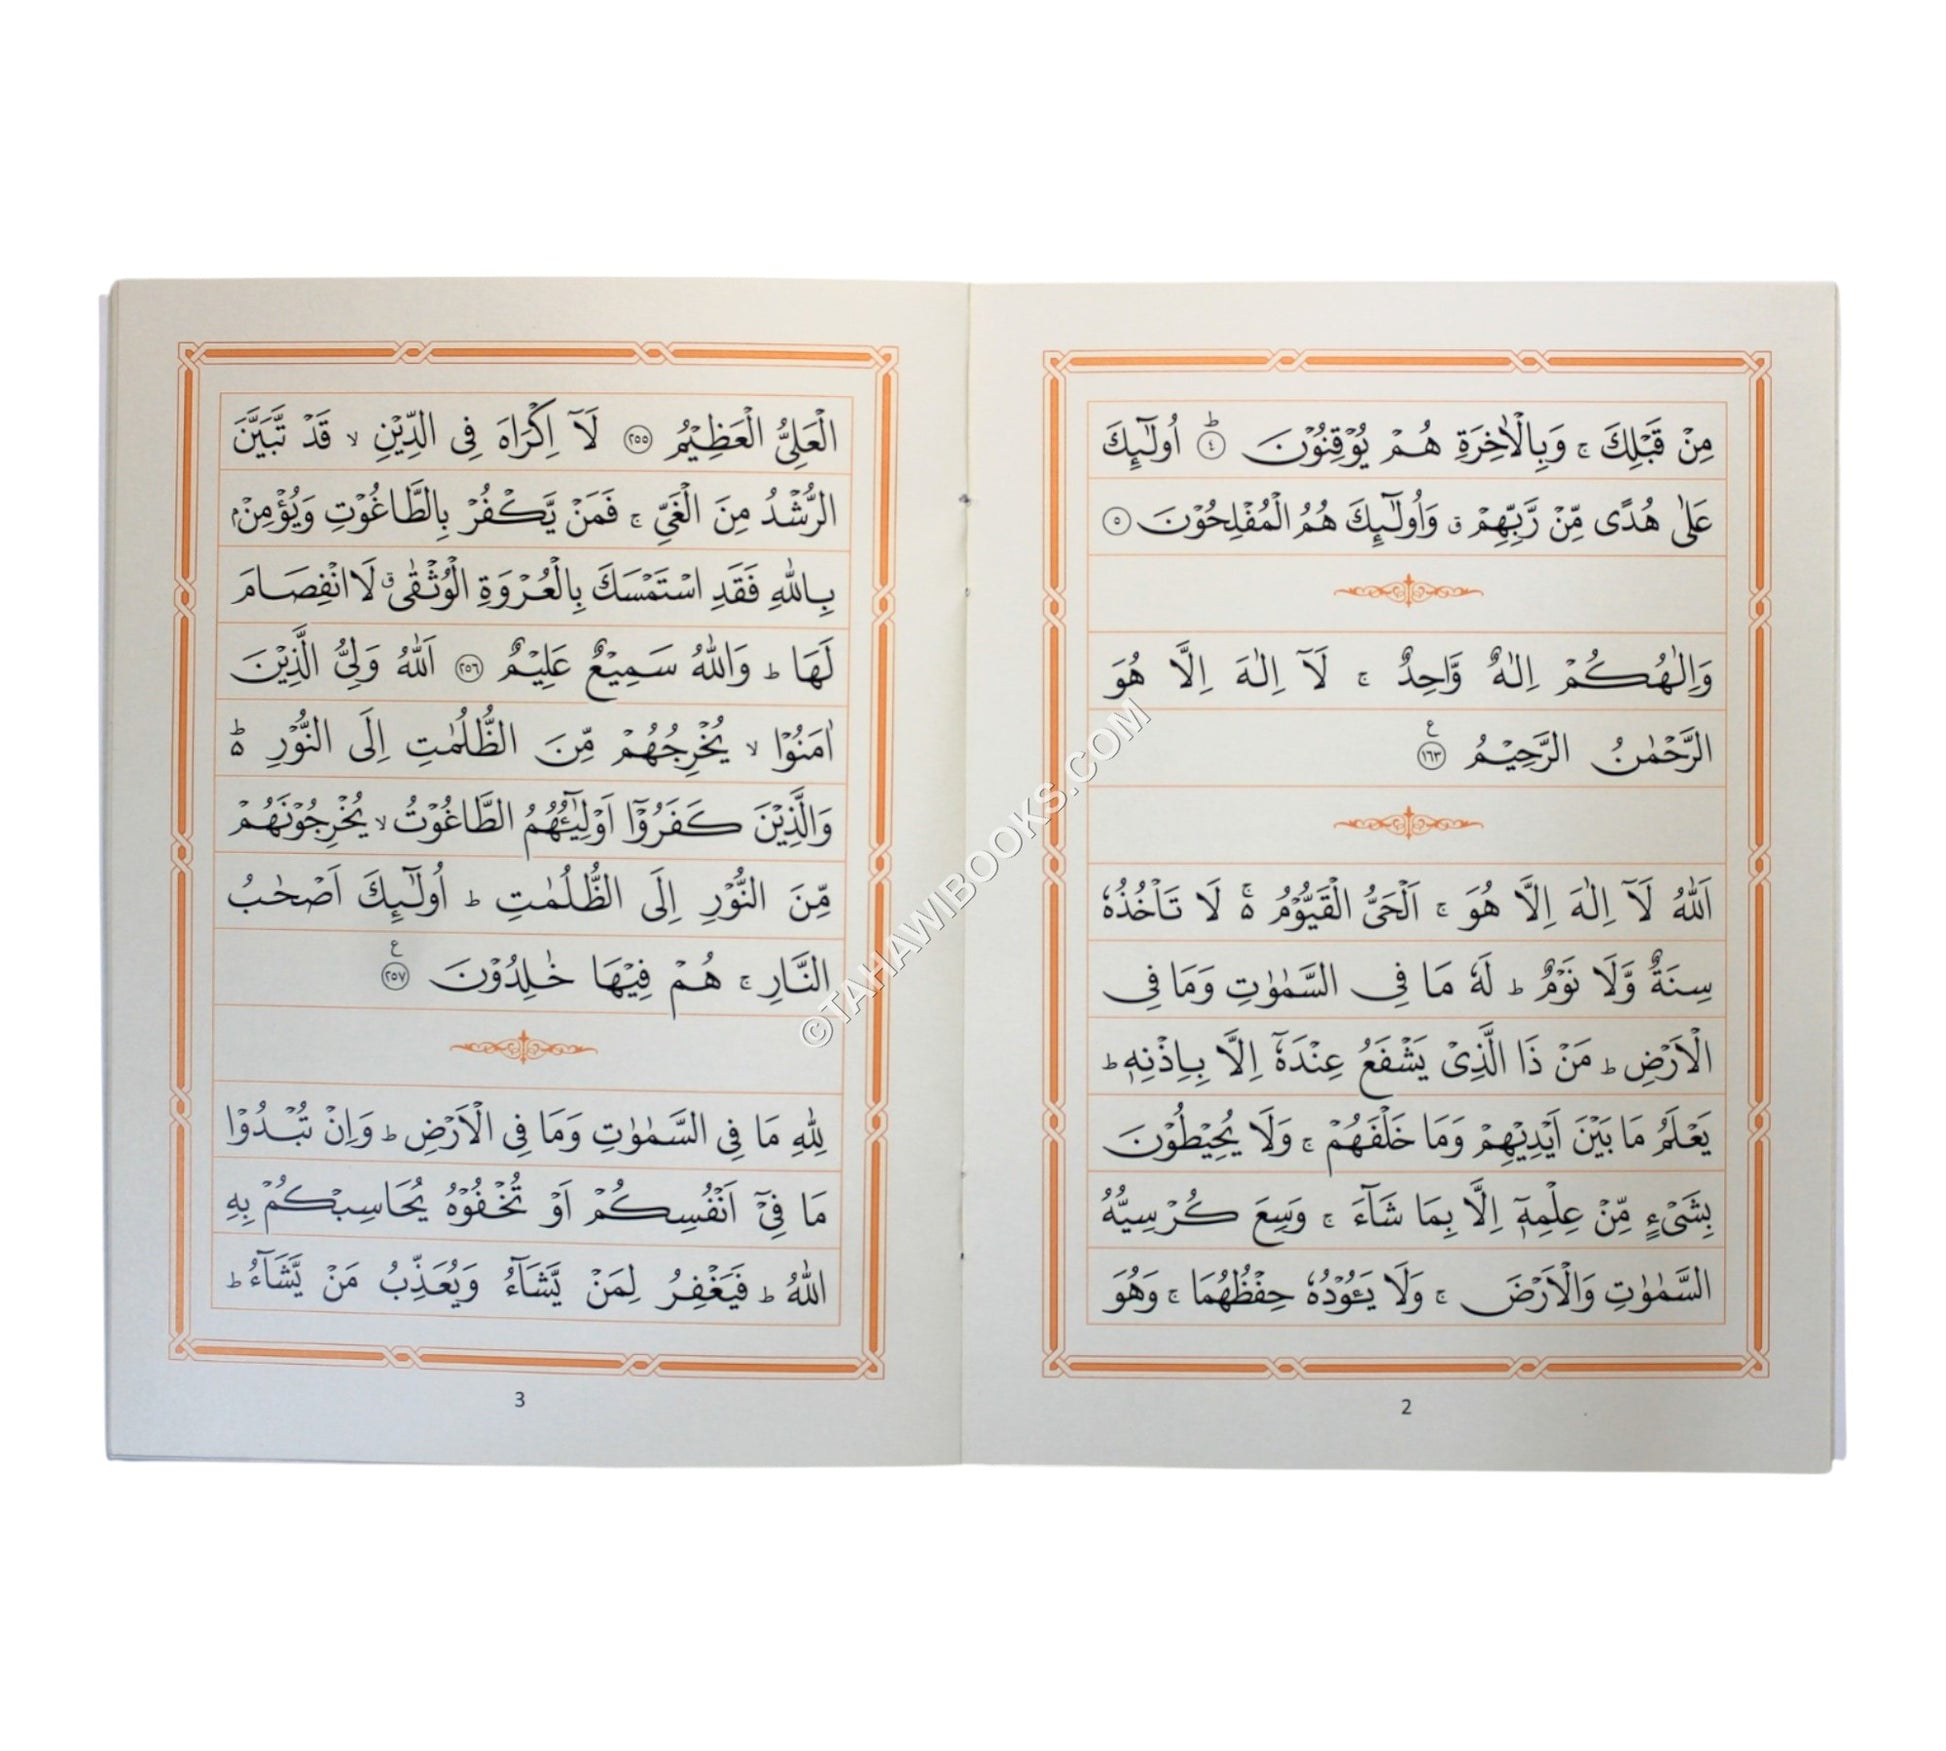 مِنْ قَبْلِكَ ۚ وَبِالْاٰخِرَةِ هُمْ يُوْقِنُوْنَ ؕ ﴿٤﴾ اُولٰٓئِكَ
عَلٰى هُدًى مِّنْ رَّبِّهِمْ ۗ وَاُولٰٓئِكَ هُمُ الْمُفْلِحُوْنَ ﴿٥﴾
وَاِلٰهُكُمْ اِلٰهٌ وَّاحِدٌ ۚ لَآ اِلٰهَ اِلَّا هُوَ
الرَّحْمٰنُ الرَّحِيْمُ ﴿١٦٣﴾ ع
اَللّٰهُ لَآ اِلٰهَ اِلَّا هُوَ ۚ اَلْحَىُّ الْقَيُّوْمُ ۚ٥ لَا تَاْخُذُهٗ
سِنَةٌ وَّلَا نَوْمٌ ؕ لَهٗ مَا فِى السَّمٰوٰتِ وَمَا فِى
الْاَرْضِ ؕ مَنْ ذَا الَّذِىْ يَشْفَعُ عِنْدَهٗٓ اِلَّا بِاِذْنِهٖ ؕ
يَعْلَمُ مَا بَيْنَ اَيْدِيْهِمْ وَمَا خَلْفَهُمْ ۚ وَلَا يُحِيْطُوْنَ
بِشَىْءٍ مِّنْ عِلْمِهٖٓ اِلَّا بِمَا شَآءَ ۚ وَسِعَ كُرْسِيُّهُ
السَّمٰوٰتِ وَالْاَرْضَ ۚ وَلَا يَـُٔوْدُهٗ حِفْظُهُمَا ۚ وَهُوَ
2
الْعَلِىُّ الْعَظِيْمُ ﴿٢٥٥﴾ لَآ اِكْرَاهَ فِى الدِّيْنِ ۙ قَدْ تَّبَيَّنَ
الرُّشْدُ مِنَ الْغَىِّ ۚ فَمَنْ يَّكْفُرْ بِالطَّاغُوْتِ وَيُؤْمِنْۢ
بِاللّٰهِ فَقَدِ اسْتَمْسَكَ بِالْعُرْوَةِ الْوُثْقٰى ۗ لَا انْفِصَامَ
لَهَا ؕ وَاللّٰهُ سَمِيْعٌ عَلِيْمٌ ﴿٢٥٦﴾ اَللّٰهُ وَلِىُّ الَّذِيْنَ
اٰمَنُوْا ۙ يُخْرِجُهُمْ مِّنَ الظُّلُمٰتِ اِلَى النُّوْرِ ؕ٥
وَالَّذِيْنَ كَفَرُوْٓا اَوْلِيٰٓـُٔهُمُ الطَّاغُوْتُ ۙ يُخْرِجُوْنَهُمْ
مِّنَ النُّوْرِ اِلَى الظُّلُمٰتِ ؕ اُولٰٓئِكَ اَصْحٰبُ
النَّارِ ۚ هُمْ فِيْهَا خٰلِدُوْنَ ﴿٢٥٧﴾ ع
لِلّٰهِ مَا فِى السَّمٰوٰتِ وَمَا فِى الْاَرْضِ ؕ وَاِنْ تُبْدُوْا
مَا فِىْٓ اَنْفُسِكُمْ اَوْ تُخْفُوْهُ يُحَاسِبْكُمْ بِهِ
اللّٰهُ ؕ فَيَغْفِرُ لِمَنْ يَّشَآءُ وَيُعَذِّبُ مَنْ يَّشَآءُ ؕ
3
©TAHAWIBOOKS.COM